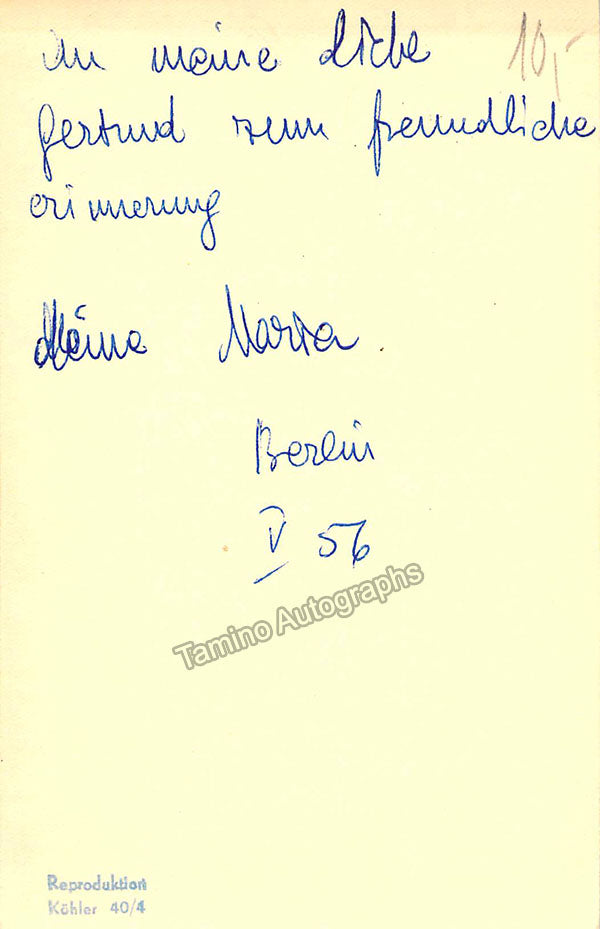 An meine Liebe
10,-
Gertrud zum freundliche
erinnerung
Maria
Berlin
V 56
Tamino Autographs
Reproduktion
Köhler 40/4